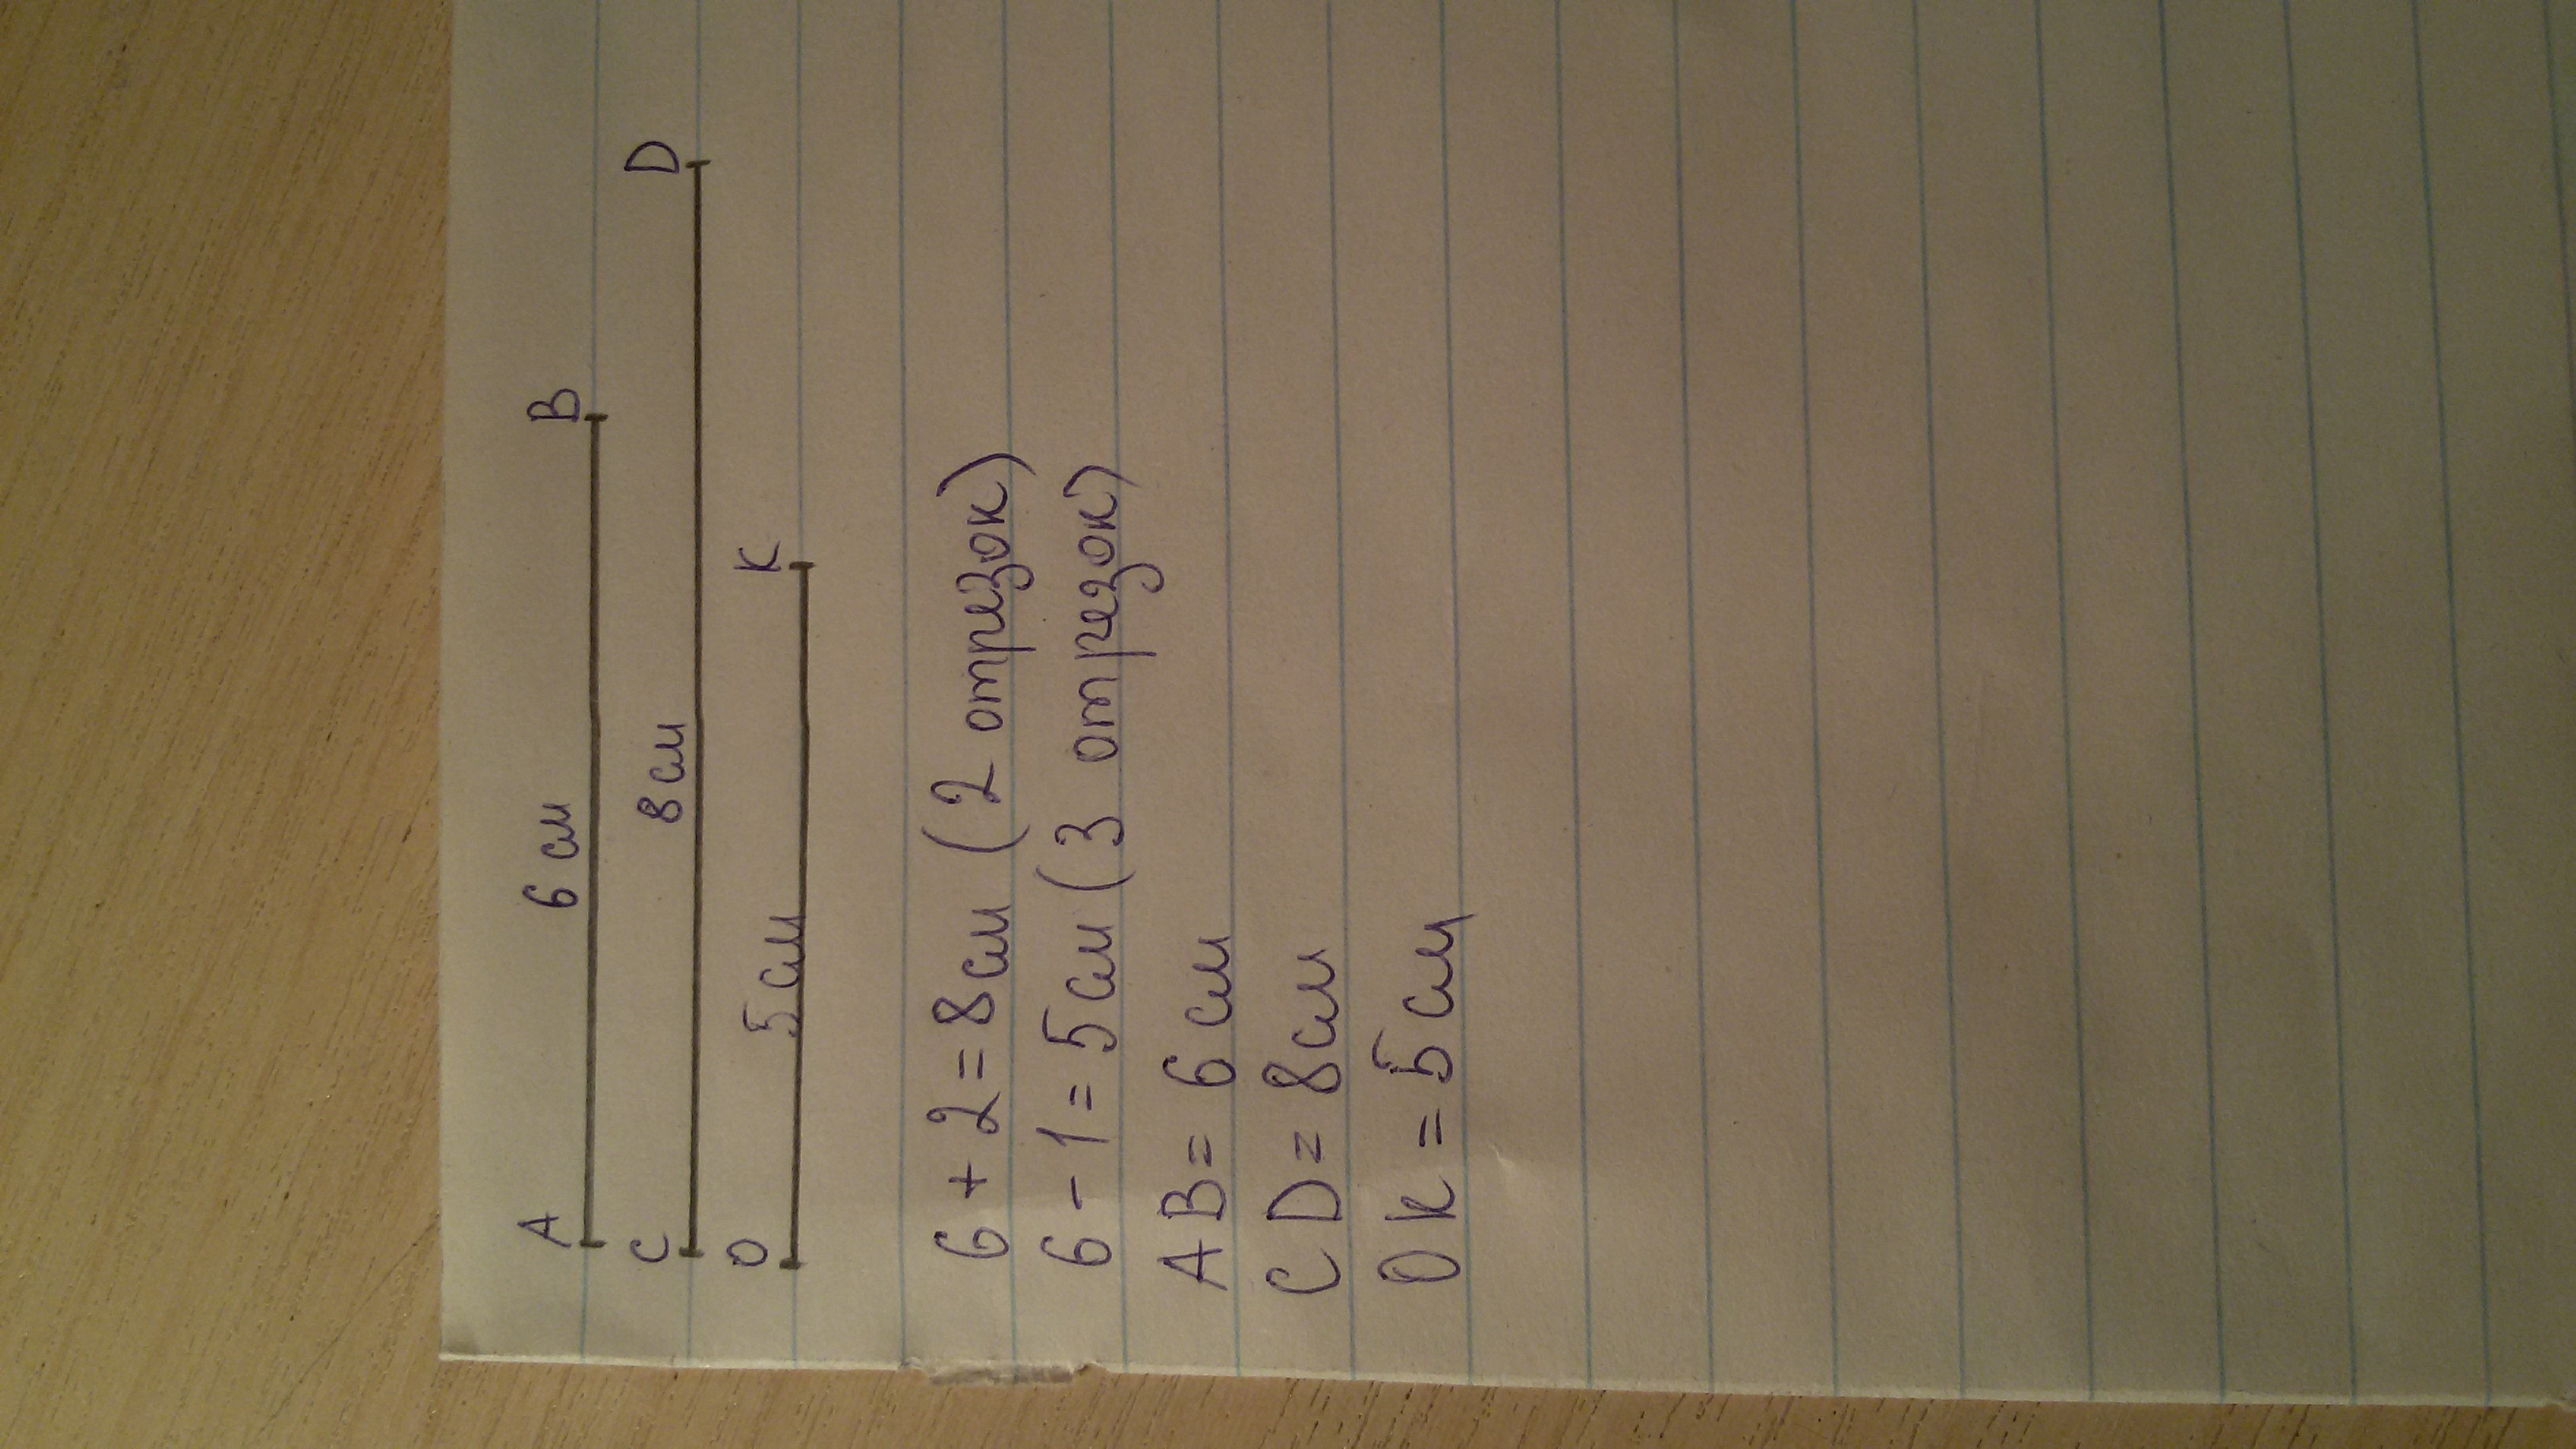 A 6 см B
C 8 см D
O 5 см K
6 + 2 = 8 см (2 отрезок)
6 - 1 = 5 см (3 отрезок)
AB = 6 см
CD = 8 см
OK = 5 см